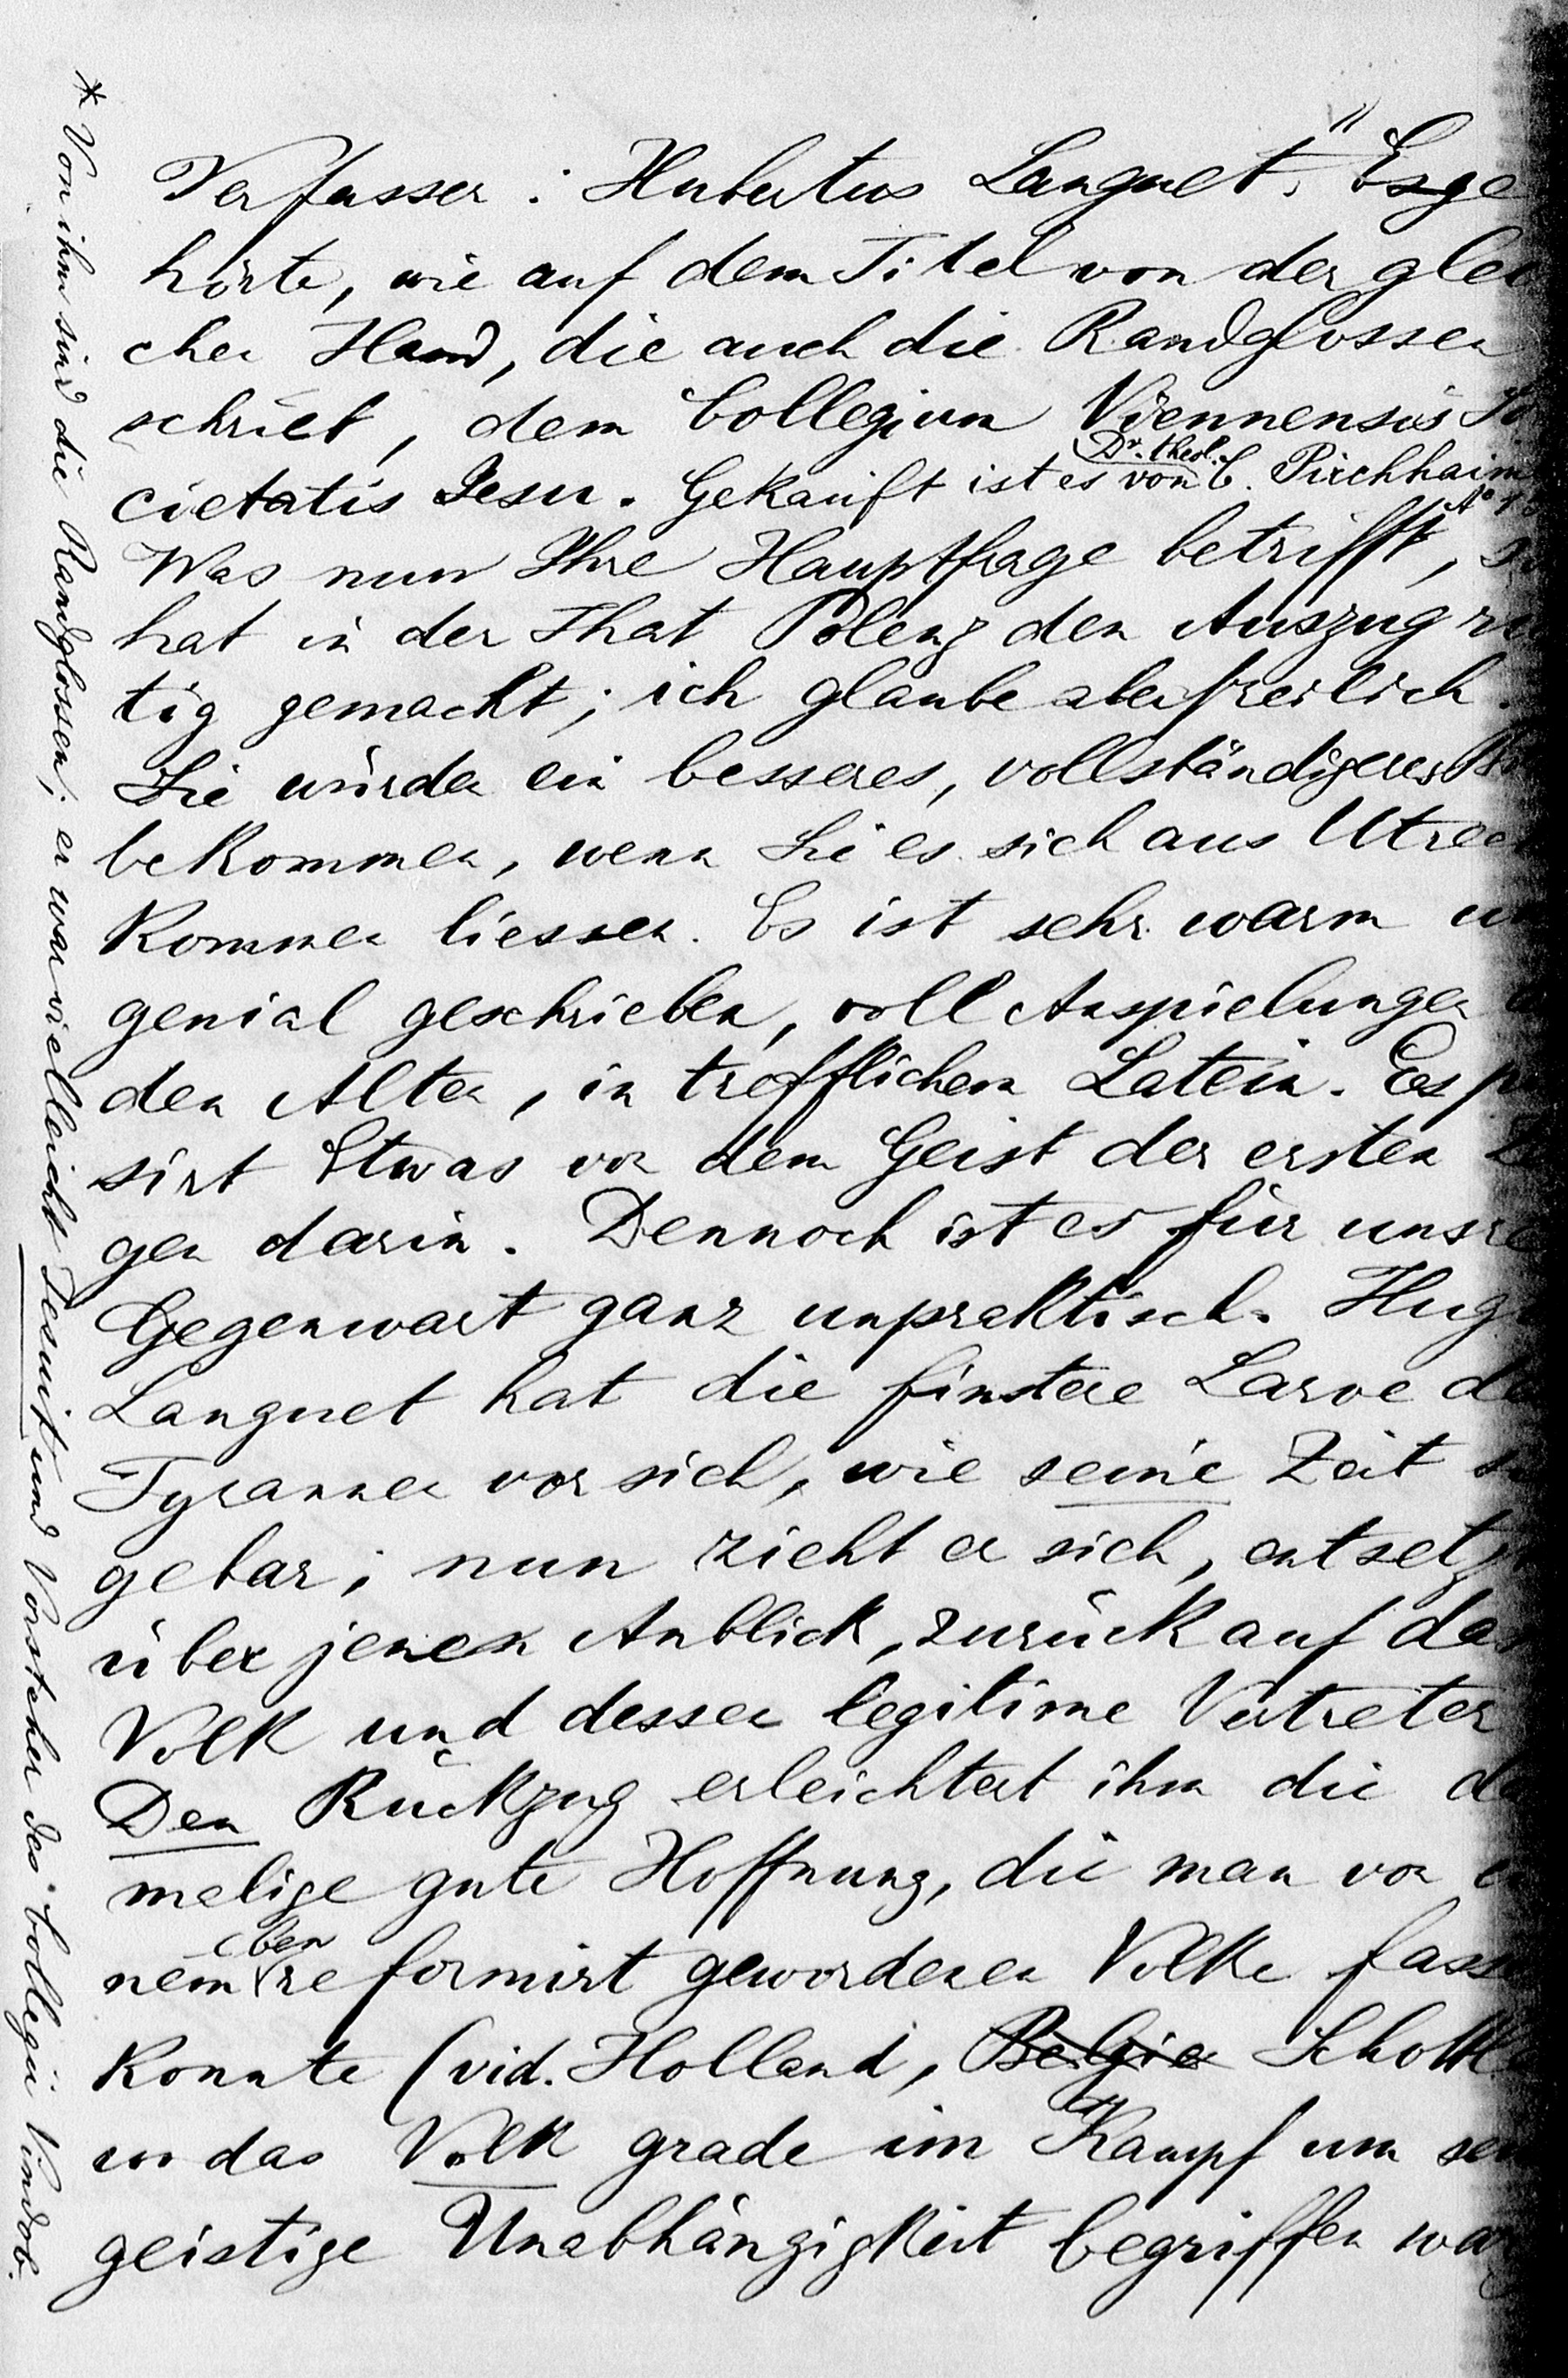 Verfasser: Hubertus Languet." Es ge
hörte, wie auf dem Titel von der glei
cher Hand, die auch die Randglossen
schrieb, dem Collegium Viennensis So
cietatis Jesu. Gekauft ist es von Dr. theol. C. Pirchhaim
Was nun Ihre Hauptfrage betrifft, so
hat in der That Polenz den Auszug
tig gemacht; ich glaube aber freilich
Sie würden ein besseres, vollständigeres
bekommen, wenn Sie es sich aus Utrec
kommen liessen. Es ist sehr warm un
genial geschrieben, voll Anspielungen
den Alten, in trefflichem Latein. Es p
sirt Etwas von dem Geist der ersten
gen darin. Dennoch ist es für unsre
Gegenwart ganz unpraktisch. Hug
Languet hat die finstere Larve de
Tyrannen vor sich, wie seine Zeit
gebar; nun zieht er sich, entsetz
über jenen Anblick, zurück auf das
Volk und dessen legitime Vertreter
Den Rückzug erleichtert ihm die da
malige gute Hoffnung, die man von ei
nem eben reformirt gewordenen Volke fass
konnte (vid. Holland, Belgien Schottl
wo das Volk grade im Kampf um sei
geistige Unabhängigkeit begriffen war
* Von ihm sind die Randglossen; er war vielleicht Jesuit und Vorsteher des Collegii Vindob.